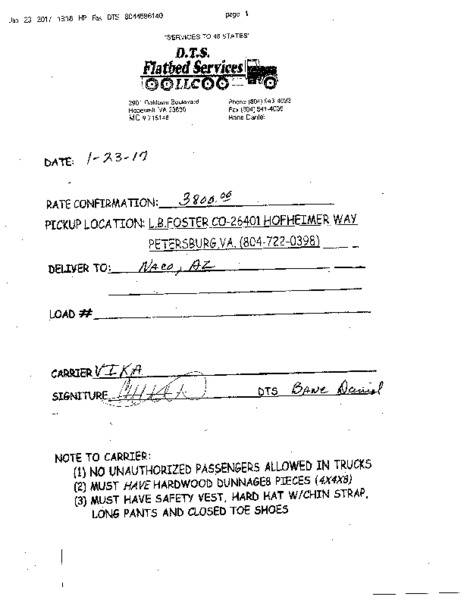 Jan 23 2017 13:18 HP Fax DTS 8044586140 page 1
"SERVICES TO 48 STATES"
D.T.S.
Flatbed Services
LLC
2901 Oaklawn Boulevard
Hopewell VA 23860
Phone (804) 541-4053
Fax (804) 541-4035
Bane Daniel
DATE: 1-23-17
RATE CONFIRMATION: 3800.00
PICKUP LOCATION: L.B.FOSTER CO-26401 HOFHEIMER WAY
PETERSBURG,VA. (804-722-0398)
DELIVER TO: NACO, AZ
LOAD #
CARRIER VIKA
SIGNITURE DTS BANE Daniel
NOTE TO CARRIER:
(1) NO UNAUTHORIZED PASSENGERS ALLOWED IN TRUCKS
(2) MUST HAVE HARDWOOD DUNNAGES PIECES (4X4X8)
(3) MUST HAVE SAFETY VEST, HARD HAT W/CHIN STRAP,
LONG PANTS AND CLOSED TOE SHOES